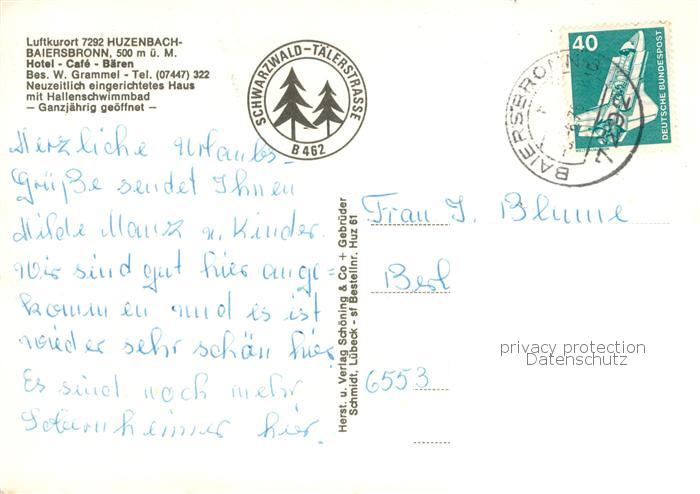 Luftkurort 7292 HUZENBACH-
BAIERSBRONN, 500 m ü. M.
Hotel - Café - Bären
Bes. W. Grammel - Tel. (07447) 322
Neuzeitlich eingerichtetes Haus
mit Hallenschwimmbad
– Ganzjährig geöffnet –
SCHWARZWALD-TÄLERSTRASSE
B 462
40
DEUTSCHE BUNDESPOST
BAIERSBRONN
7292
Herzliche Urlaubs-
Grüße sendet Ihnen
Hilde Manz u. Kinder.
Wir sind gut hier ange=
kommen und es ist
wieder sehr schön hier
Es sind noch mehr
Sobernheimer hier.
Herst. u. Verlag Schöning & Co + Gebrüder
Schmidt, Lübeck - sf Bestellnr. Huz 61
Frau J. Blume
6553
privacy protection
Datenschutz